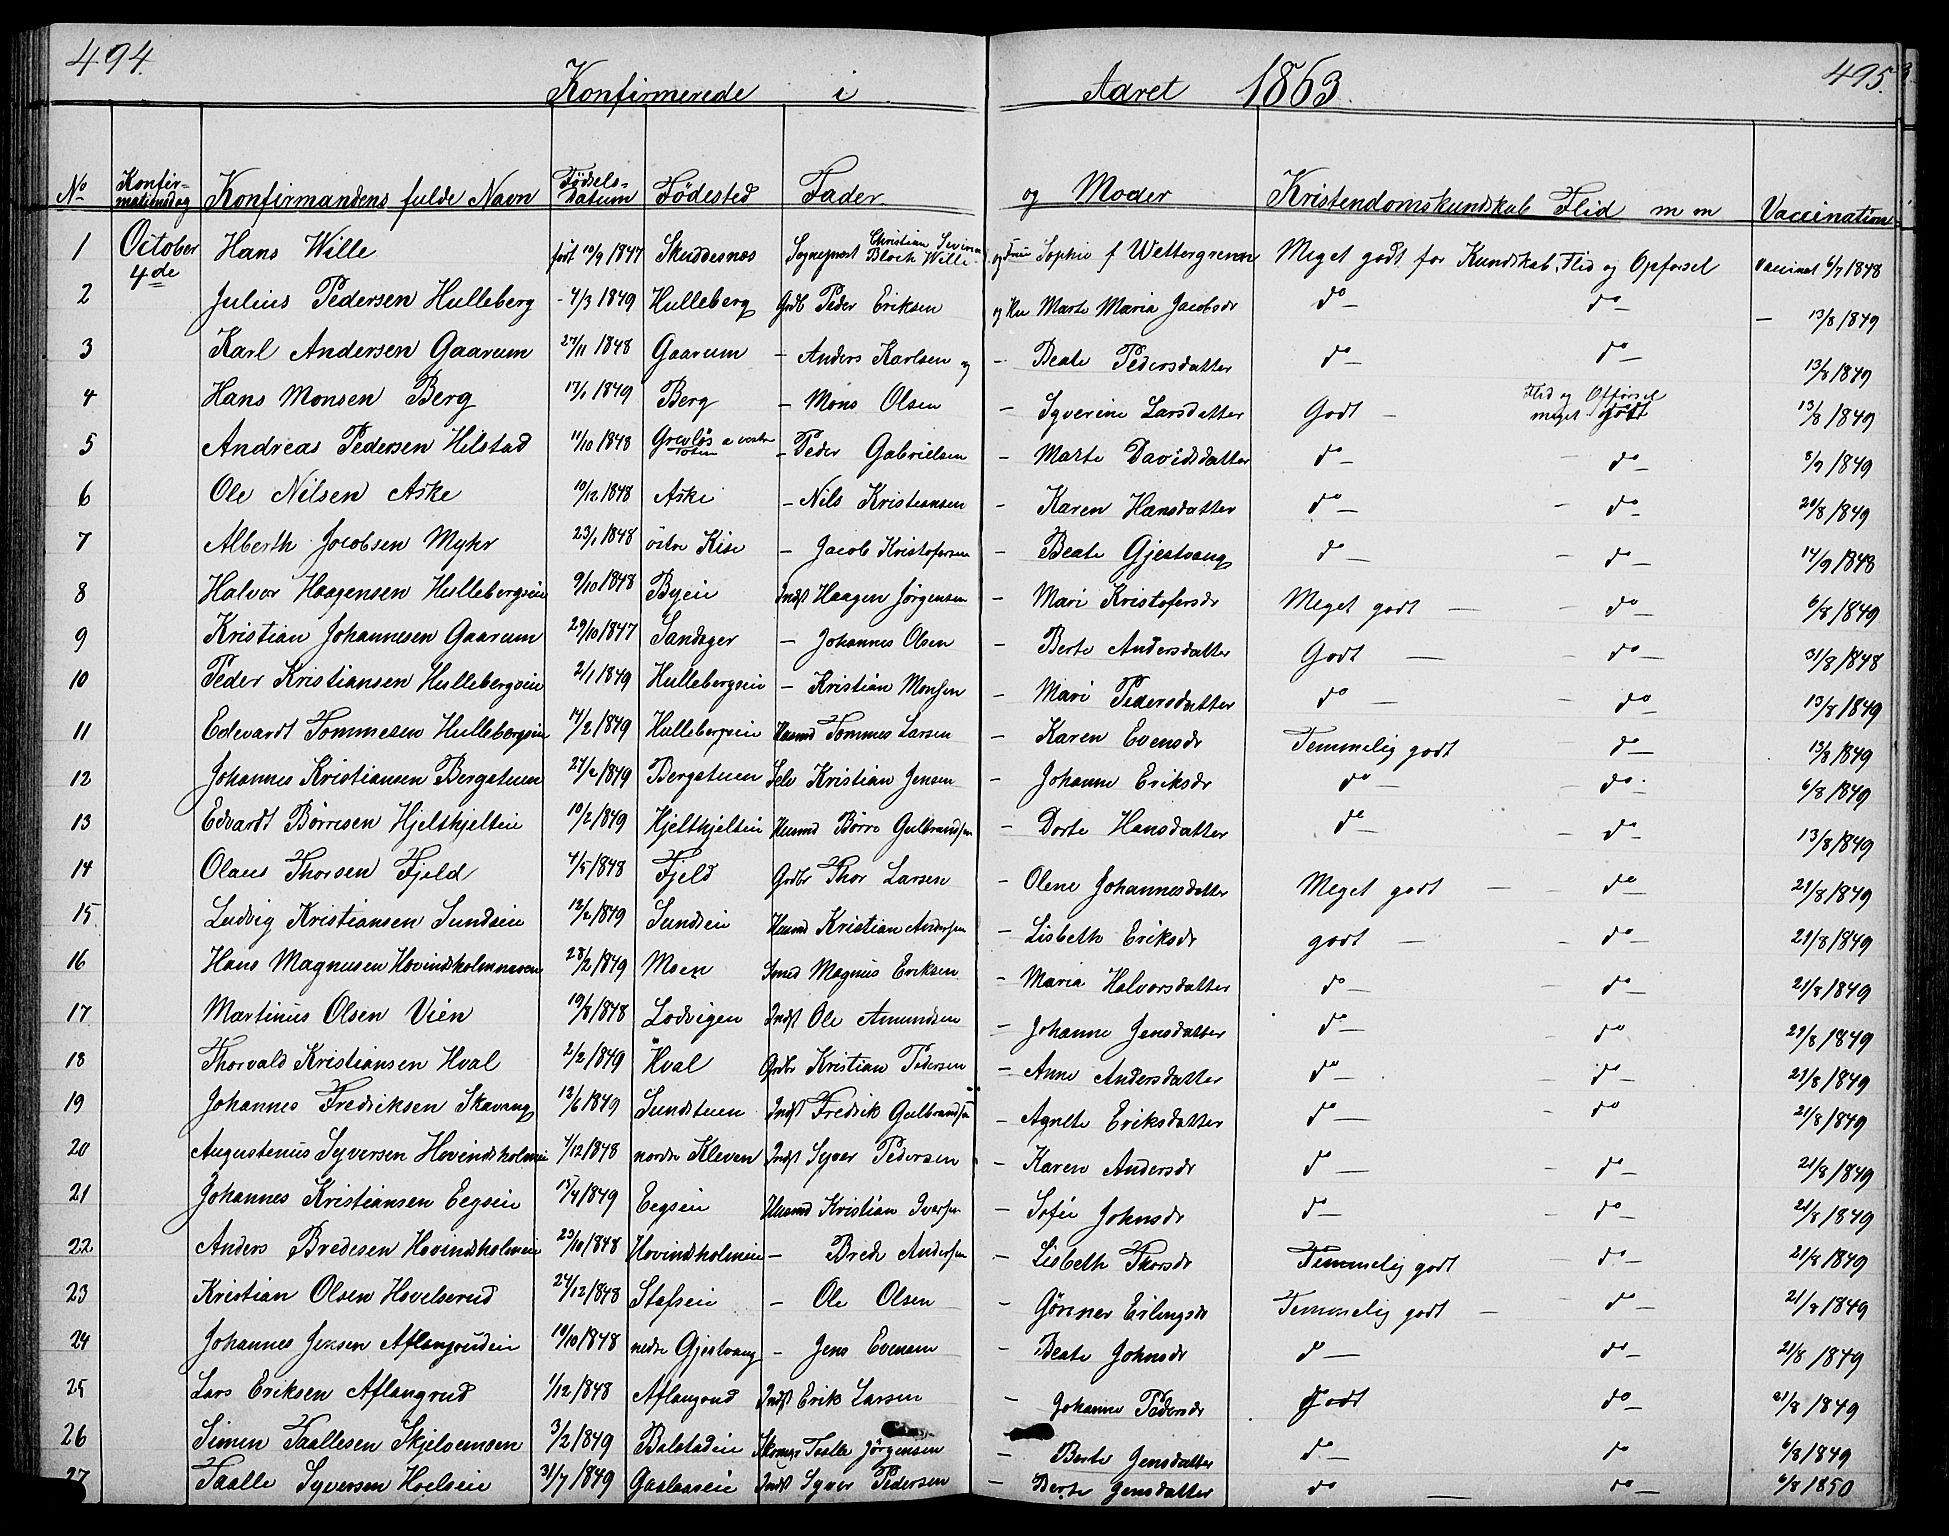 494. 495.
Konfirmerede i Aaret 1863.
No Konfirmationsdag Konfirmandens fulde Navn Fødsels-Datum Fødested Fader og Moder Kristendomskundskab Flid m m Vaccination
1 October 4de Hans Wille født 10/9 1847 Skudesnæs Sogneprest Christian Severin Bloch Wille og Frue Sophie f Wettergreen Meget godt for Kundskab, Flid og Opførsel Vaccinet 6/7 1848
2 Julius Pedersen Hulleberg - 4/3 1849 Hulleberg Grdb Peder Eriksen og Ku Marte Maria Jacobsdr do - do - - 13/8 1849
3 Karl Andersen Gaarum 27/11 1848 Gaarum - Anders Karlsen og - Beate Pedersdatter do - do - 13/8 1849
4 Hans Monsen Berg 17/1 1849 Berg - Mons Olsen - Syverine Larsdatter Godt - Flid og Opførsel meget godt 13/8 1849
5 Andreas Pedersen Hilstad 11/10 1848 - Peder Gabrielsen - Marte Davidsdatter do - - do - 3/9 1849
6 Ole Nilsen Aske 10/12 1848 Aske - Nils Kristiansen - Karen Hansdatter do - - do - 20/8 1849
7 Alberth Jacobsen Myhr 23/1 1848 østre Kise - Jacob Kristofersen - Beate Gjestvang do - - do - 14/9 1848
8 Halvor Haagensen Hullebergseie 9/10 1848 Byeie Indst Haagen Jørgensen - Mari Kristofersdr Meget godt - - do - 6/8 1849
9 Kristian Johannesen Gaarum 29/10 1847 Sandager - Johannes Olsen - Berte Andersdatter Godt - - do - 31/8 1848
10 Peder Kristiansen Hullebergseie 2/1 1849 Hullebergseie - Kristian Monsen - Mari Pedersdatter do - - do 13/8 1849
11 Edvardt Tommesen Hullebergseie 14/2 1849 Hullebergseie Husmd Tommes Larsen - Karen Evensdr Temmelig godt - do - 13/8 1849
12 Johannes Kristiansen Bergstuen 27/2 1849 Bergstuen Selv Kristian Jensen - Johanne Eriksdr do - - do - 6/8 1849
13 Edvardt Børresen Hjelthjelteie 10/2 1849 Hjelthjelteie Husmd Børre Gulbrandsen - Dorte Hansdatter do - - do - 13/8 1849
14 Olaus Thorsen Fjeld 4/5 1848 Fjeld Grdbr Thor Larsen - Olene Johannesdatter Meget godt - - do - 21/8 1849
15 Ludvig Kristiansen Sundseie 12/2 1849 Sundseie Husmd Kristian Andersen - Lisbeth Eriksdr godt - - do - 21/8 1849
16 Hans Magnusen Hovindsholm 28/2 1849 Moen Smed Magnus Eriksen - Maria Halvorsdatter do - - do - 21/8 1849
17 Martinus Olsen Vien 19/8 1848 Lodvigen Indst Ole Amundsen - Johanne Jensdatter do - - do 21/8 1849
18 Thorvald Kristiansen Hval 2/2 1849 Hval Grdbr Kristian Pedersen - Anne Andersdatter do - - do - 21/8 1849
19 Johannes Fredriksen Skavang 12/6 1849 Sundstuen Indst Fredrik Gulbrandsen - Agnete Eriksdatter do - - do 21/8 1849
20 Augustenius Syversen Hovindsholmeie 4/12 1848 nordre Kleven Indst Syver Pedersen - Karen Andersdr do - - do - 21/8 1849
21 Johannes Kristiansen Eegseie 15/4 1849 Eegseie Husmd Kristian Iversen - Sofie Johnsdr do - - do - 21/8 1849
22 Anders Bredesen Hovindsholmeie 23/10 1848 Hovindsholmeie - Brede Andersen - Lisbeth Thorsdr Temmelig godt - do - 21/8 1849
23 Kristian Olsen Hovelsrud 24/12 1848 Stafseie - Ole Olsen - Gønner Erlingsdr Temmelig godt - - do - 21/8 1849
24 Johannes Jensen Aflangrudeie 10/10 1848 nedre Gjestvang - Jens Evensen - Beate Johnsdr do - do - 21/8 1849
25 Lars Eriksen Aflangrud 1/12 1848 Aflangrud Indst Erik Larsen - Johanne Pedersdr Godt do - 21/8 1849
26 Simen Taallesen Skjelvensen 3/2 1849 Balstadeie Taalle Jørgensen - Berte Jensdatter do - do 6/8 1849
27 Taalle Syversen Hoelseie 31/7 1849 Gaalaaseie Indst Syver Pedersen - Berte Jensdatter do - do - 6/8 1850